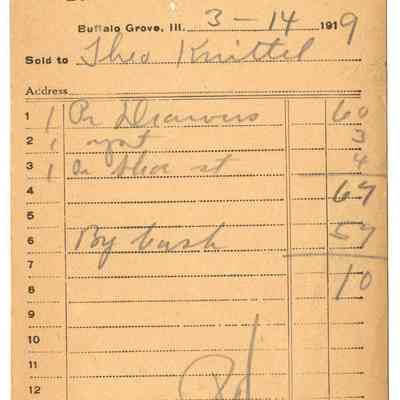 Buffalo Grove, Ill. 3-14 1919
Sold to Theo Knittel
Address
1 1 Pr Drawers 60
2 1 3
3 1 Pr Shoe st 4
4 67
5
6 By Cash 57
7
8 10
9
10
11
12 Pd